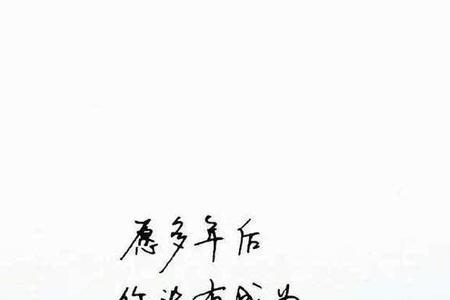 愿多年后
你没有成为